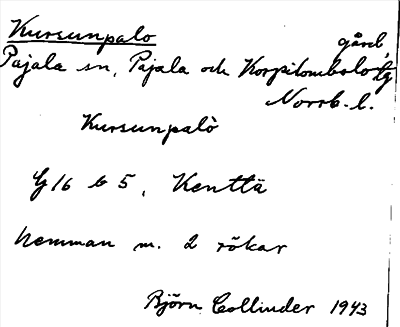 Kursunpalo gård,
Pajala sn, Pajala och Korpilombolo tg
Norrb. l.
Kursunpalò
G 16 b 5, Kenttä
hemman m. 2 rökar
Björn Collinder 1943